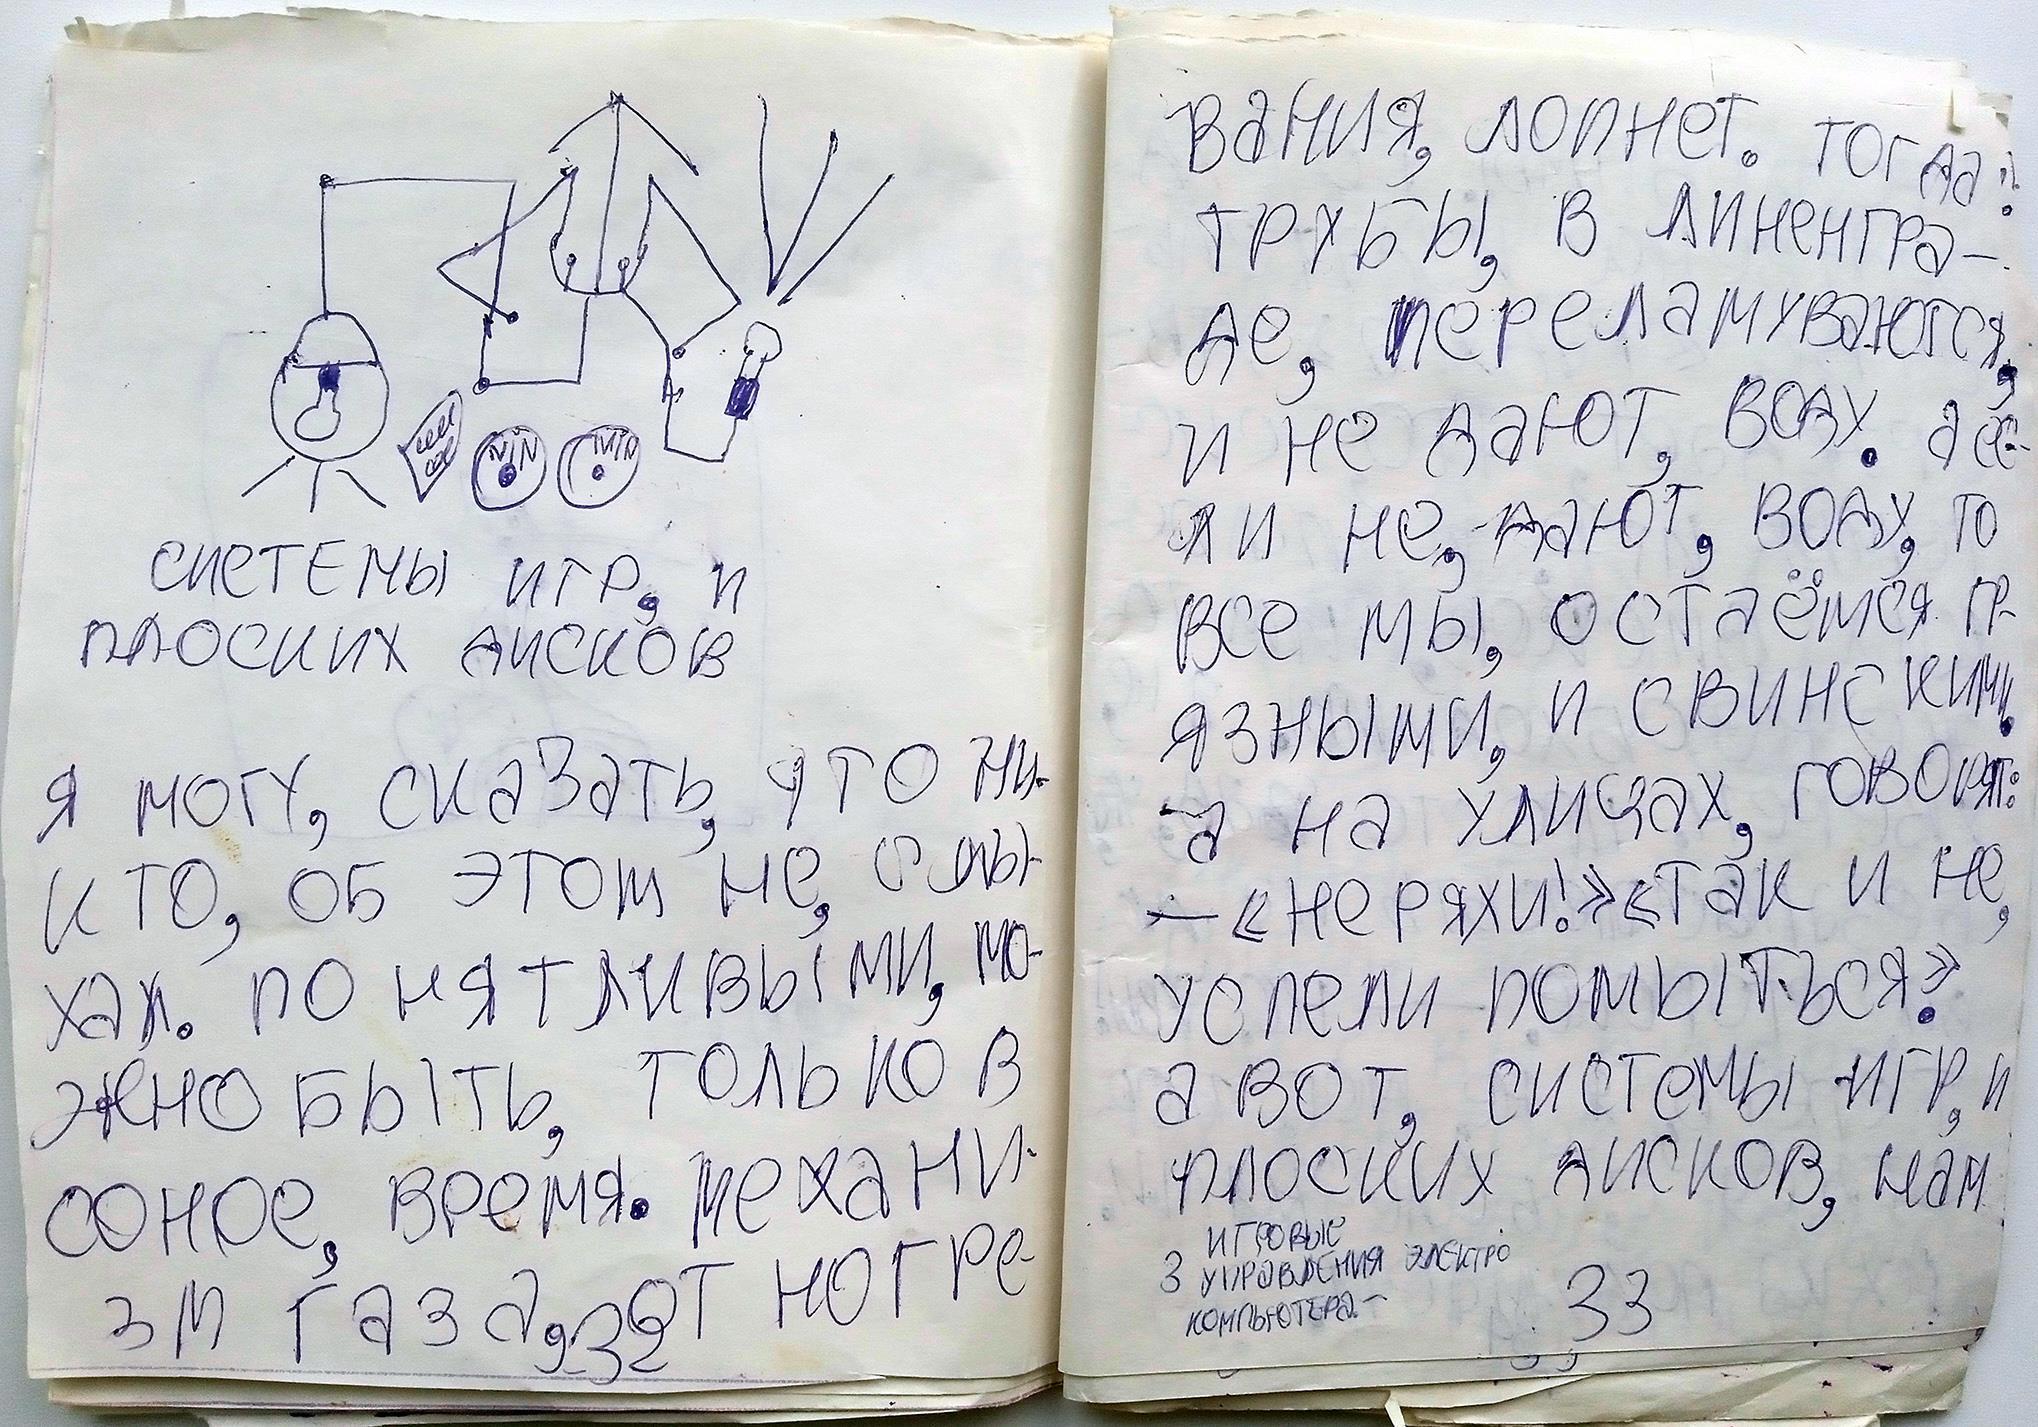 системы игр, и
плоских дисков
я могу, сказать, что ни-
кто, об этом не, слы-
хал. понятливыми, мо-
жно быть, только в
соное, время. механи-
зм газа, от ногре-
32
вания, лопнет. тогда:
трубы, в линенгра-
де, переламуваются,
и не дают, воду. а ес-
ли не, дают, воду, то
все мы, остаёмся гр-
язными, и свинскими.
а на улицах, говорят:
— «неряхи!» «так и не,
успели помыться».
а вот, системы игр, и
плоских дисков, нам
3 игровые
управления электро
компьютера-
33